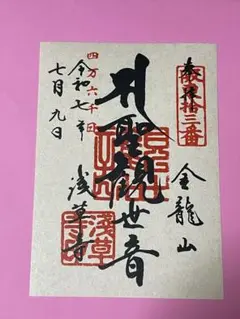 奉拝
坂東拾三番
金龍山
聖観世音
浅草寺
四万六千日
令和七年
七月九日
浅草